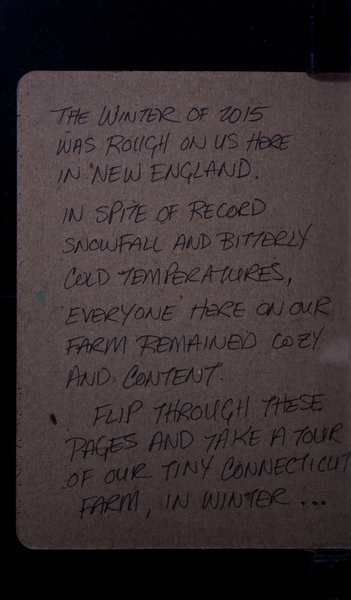 THE WINTER OF 2015
WAS ROUGH ON US HERE
IN NEW ENGLAND.
IN SPITE OF RECORD
SNOWFALL AND BITTERLY
COLD TEMPERATURES,
EVERYONE HERE ON OUR
FARM REMAINED COZY
AND CONTENT.
FLIP THROUGH THESE
PAGES AND TAKE A TOUR
OF OUR TINY CONNECTICUT
FARM, IN WINTER ...